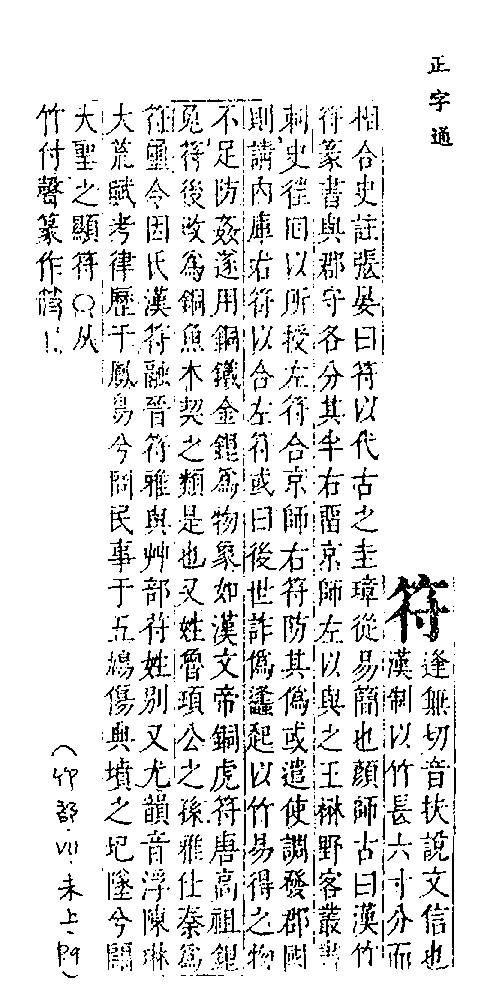 正字通
符
逢無切音扶說文信也
漢制以竹長六寸分而
相合史註張晏曰符以代古之圭璋從易簡也顏師古曰漢竹
符篆書與郡守各分其半右留京師左以與之王楙野客叢書
刺史徃囘以所授左符合京師右符防其僞或遣使調發郡國
則請內庫右符以合左符或曰後世詐僞蠭起以竹易得之物
不足防姦遂用銅鐵金銀爲物象如漢文帝銅虎符唐高祖銀
兔符後改爲銅魚木契之類是也又姓魯頃公之孫雅仕秦爲
符璽令因氏漢符融晉符雅與艸部苻姓別又尤韻音浮陳琳
大荒賦考律歷于鳳鳥兮問民事于五鳩傷典墳之圮墜兮
大聖之顯符○从
竹付聲篆作